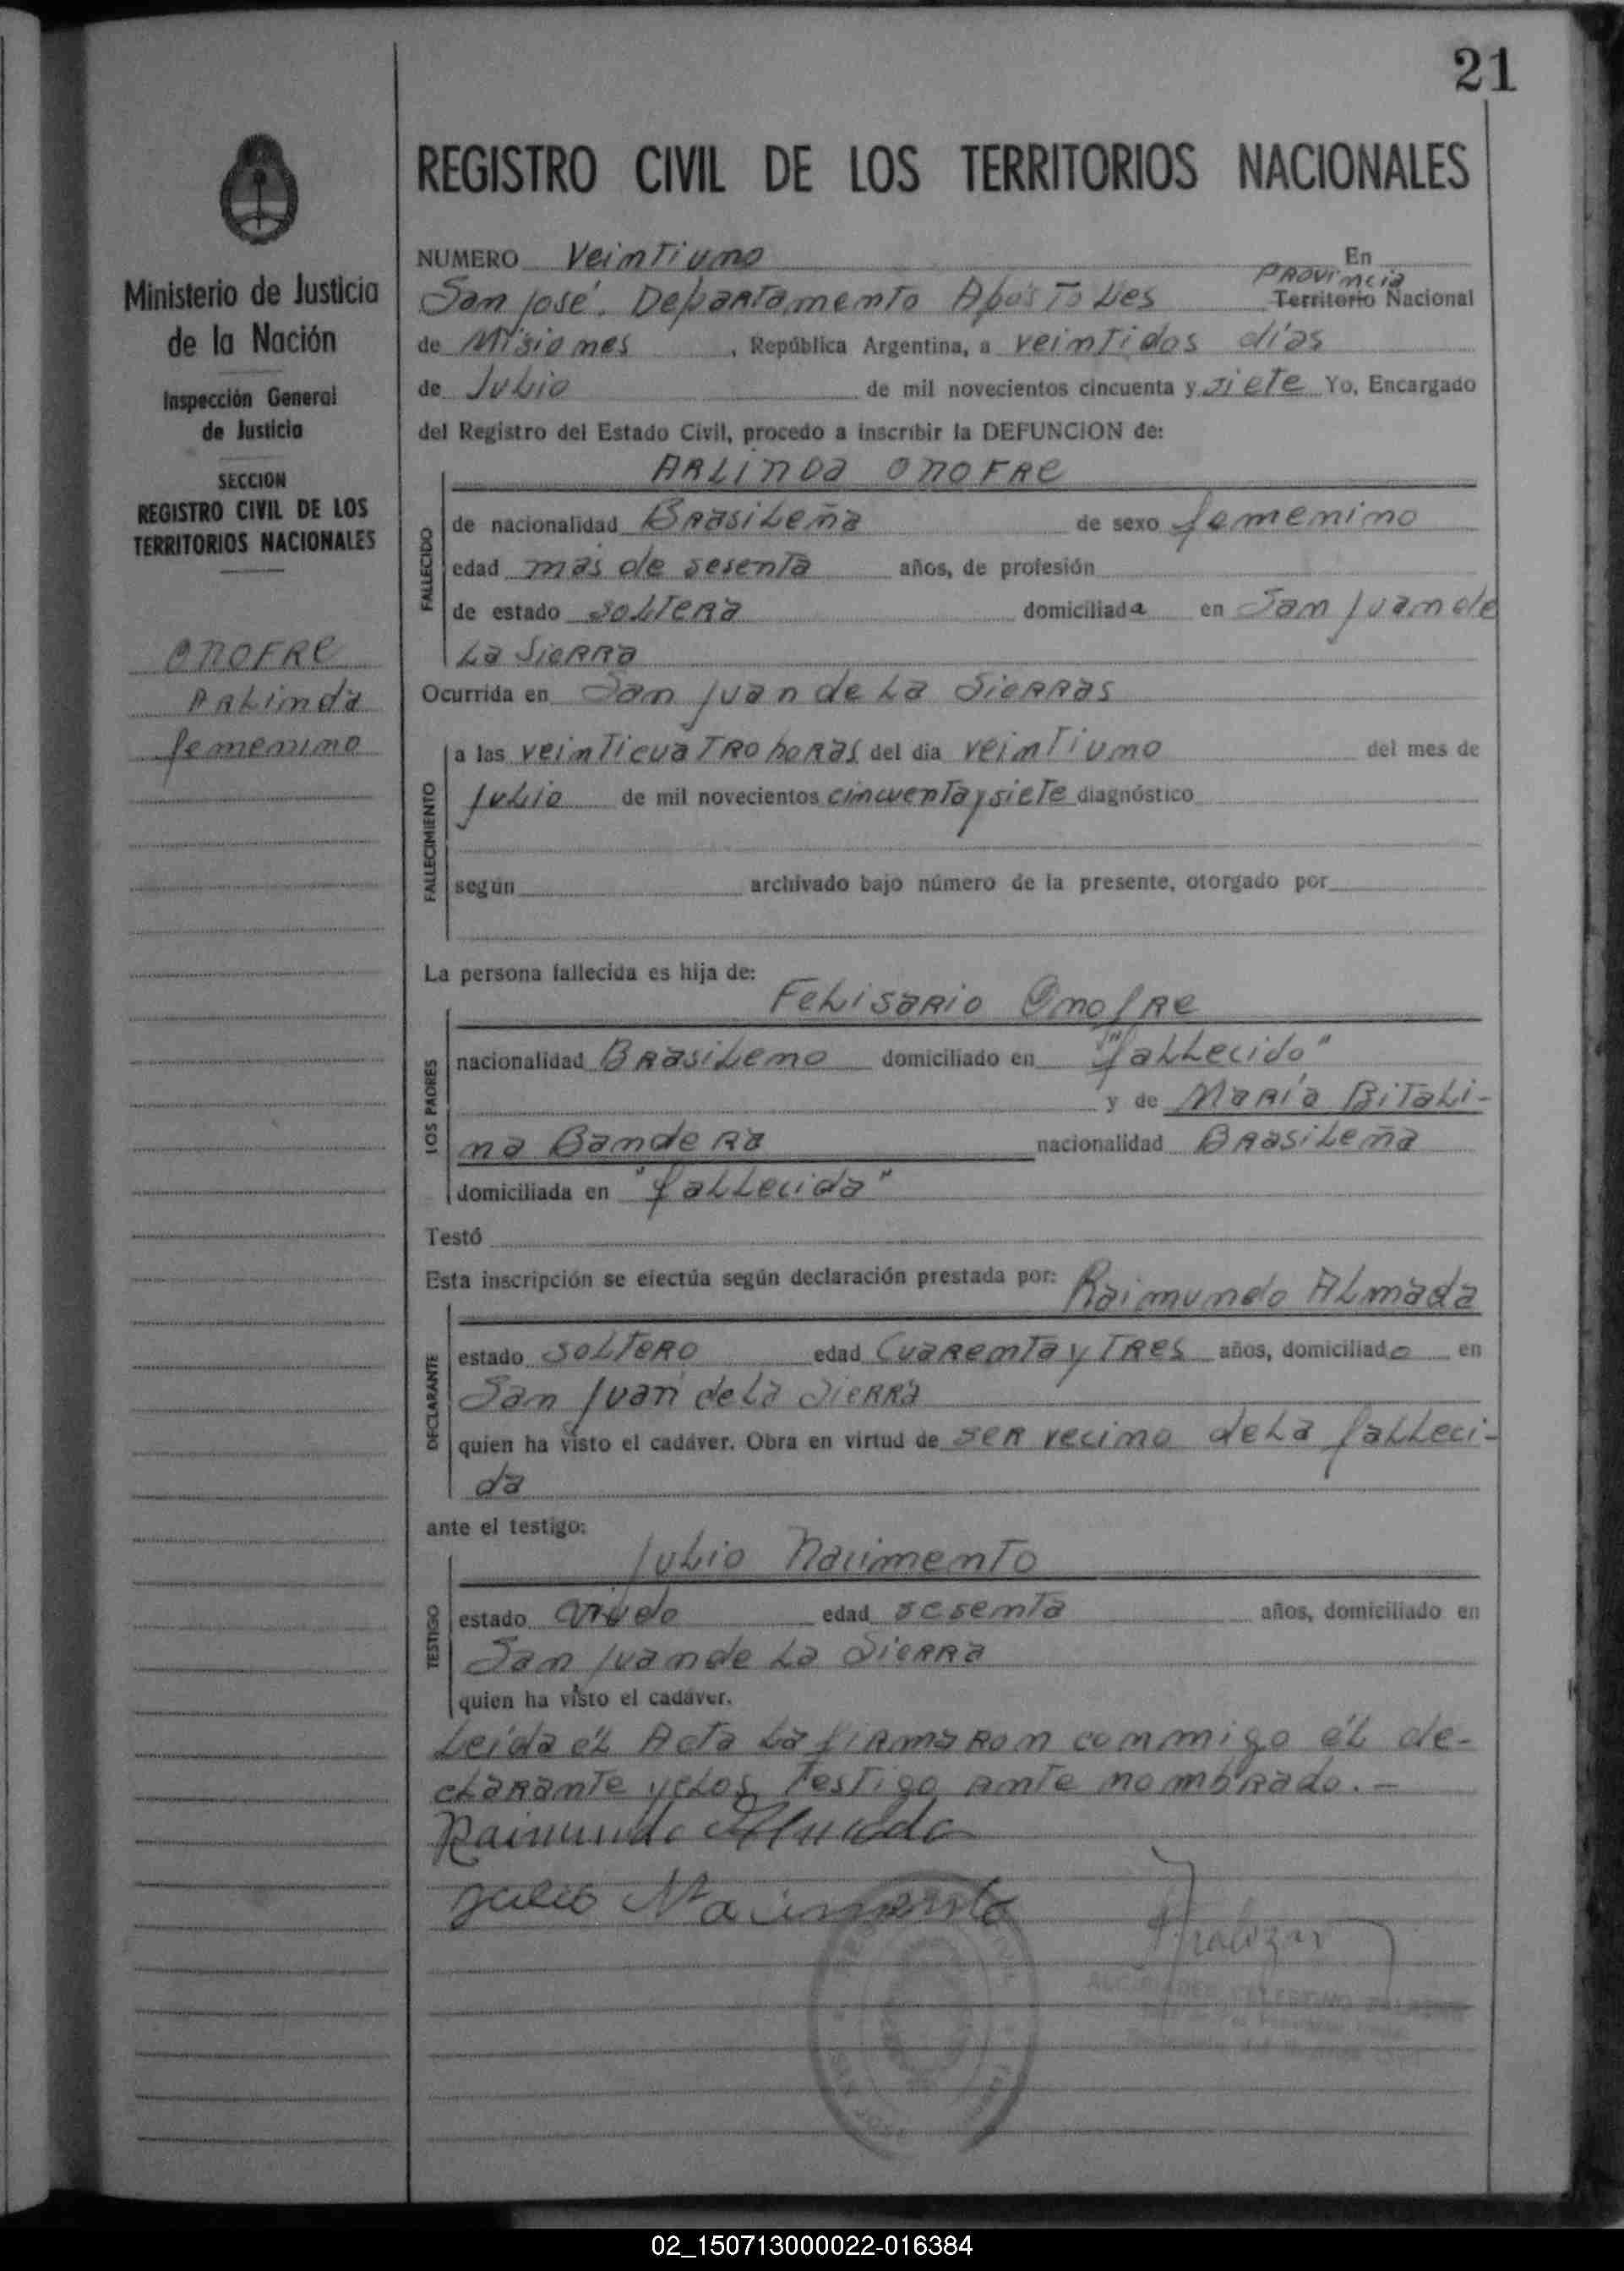 21
REGISTRO CIVIL DE LOS TERRITORIOS NACIONALES
Ministerio de Justicia
de la Nación
Inspección General
de Justicia
SECCION
REGISTRO CIVIL DE LOS
TERRITORIOS NACIONALES
ONOFRE
ARLinda
femenino
NUMERO Veintiuno En
San José. Departamento Apóstoles Provincia Territorio Nacional
de Misiones, República Argentina, a veintidos días
de Julio de mil novecientos cincuenta y siete Yo, Encargado
del Registro del Estado Civil, procedo a inscribir la DEFUNCION de:
ARLINDA ONOFRE
FALLECIDO
de nacionalidad Brasileña de sexo femenino
edad más de sesenta años, de profesión
de estado soltera domiciliada en San Juan de
La Sierra
Ocurrida en San Juan de La Sierras
FALLECIMIENTO
a las veinticuatro horas del día veintiuno del mes de
Julio de mil novecientos cincuenta y siete diagnóstico
según archivado bajo número de la presente, otorgado por
La persona fallecida es hija de:
Felisario Onofre
LOS PADRES
nacionalidad Brasileno domiciliado en "fallecido"
y de María Bitali-
na Bandera nacionalidad Brasileña
domiciliada en "fallecida"
Testó
Esta inscripción se efectúa según declaración prestada por: Raimundo Almada
DECLARANTE
estado soltero edad Cuarenta y Tres años, domiciliado en
San Juan de La Sierra
quien ha visto el cadáver. Obra en virtud de ser vecino de La falleci-
da
ante el testigo:
Julio Nacimento
TESTIGO
estado viudo edad sesenta años, domiciliado en
San Juan de La Sierra
quien ha visto el cadáver.
Leída él Acta La firmaron conmigo él de-
clarante y Los Testigo ante nombrado.-
Raimundo Almada
Julio Nacimento
02_150713000022-016384